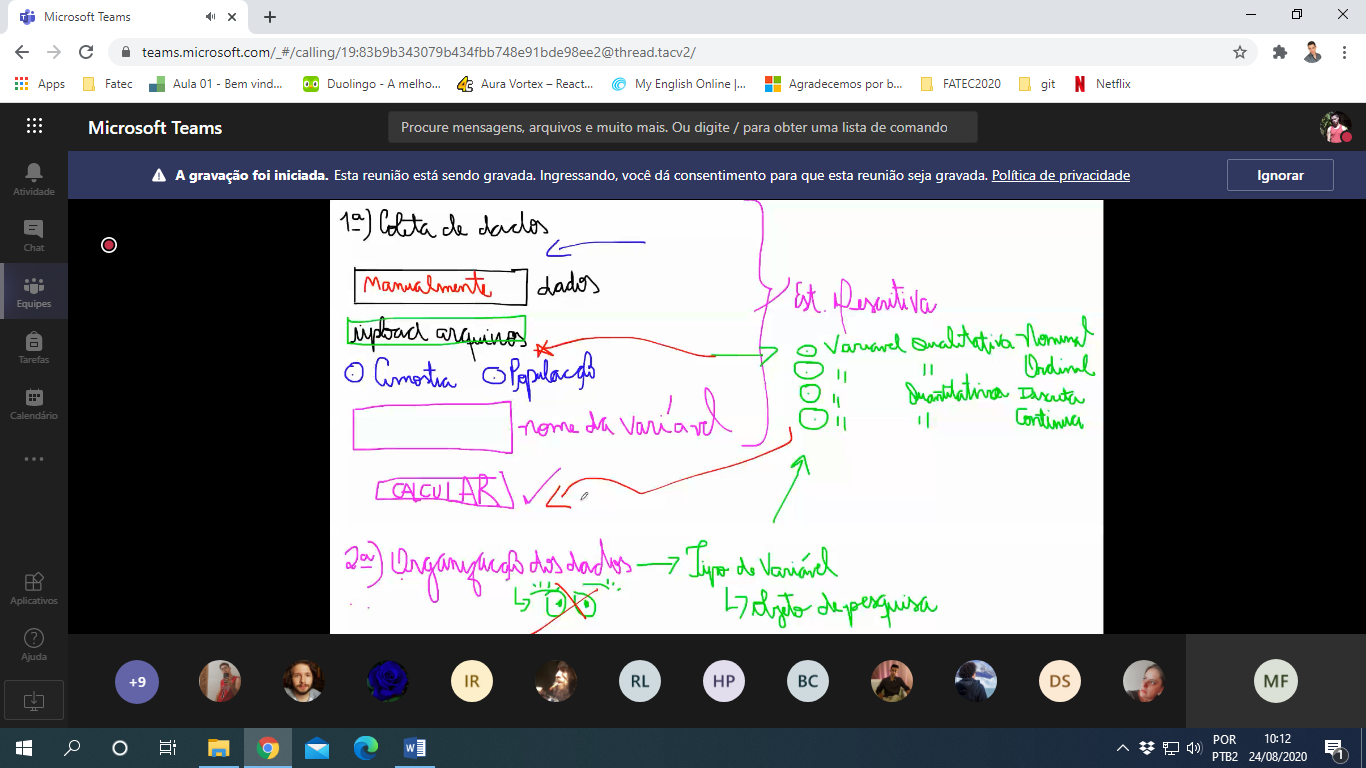 Microsoft Teams
teams.microsoft.com/_#/calling/19:83b9b343079b434fbb748e91bde98ee2@thread.tacv2/
Apps Fatec Aula 01 - Bem vind... Duolingo - A melho... Aura Vortex – React... My English Online |... Agradecemos por b... FATEC2020 git Netflix
Microsoft Teams Procure mensagens, arquivos e muito mais. Ou digite / para obter uma lista de comando
A gravação foi iniciada. Esta reunião está sendo gravada. Ingressando, você dá consentimento para que esta reunião seja gravada. Política de privacidade Ignorar
Atividade
Chat
Equipes
Tarefas
Calendário
Aplicativos
Ajuda
1ª) Coleta de dados
Manualmente dados
upload arquivos
Amostra População
nome da variável
CALCULAR
Est. Descritiva
Variável Qualitativa Nominal
" " Ordinal
" Quantitativa Discreta
" " Continua
2ª) Organização dos dados → Tipo de Variável
↳ Objeto de pesquisa
+9 IR RL HP BC DS MF
POR
PTB2
10:12
24/08/2020
1